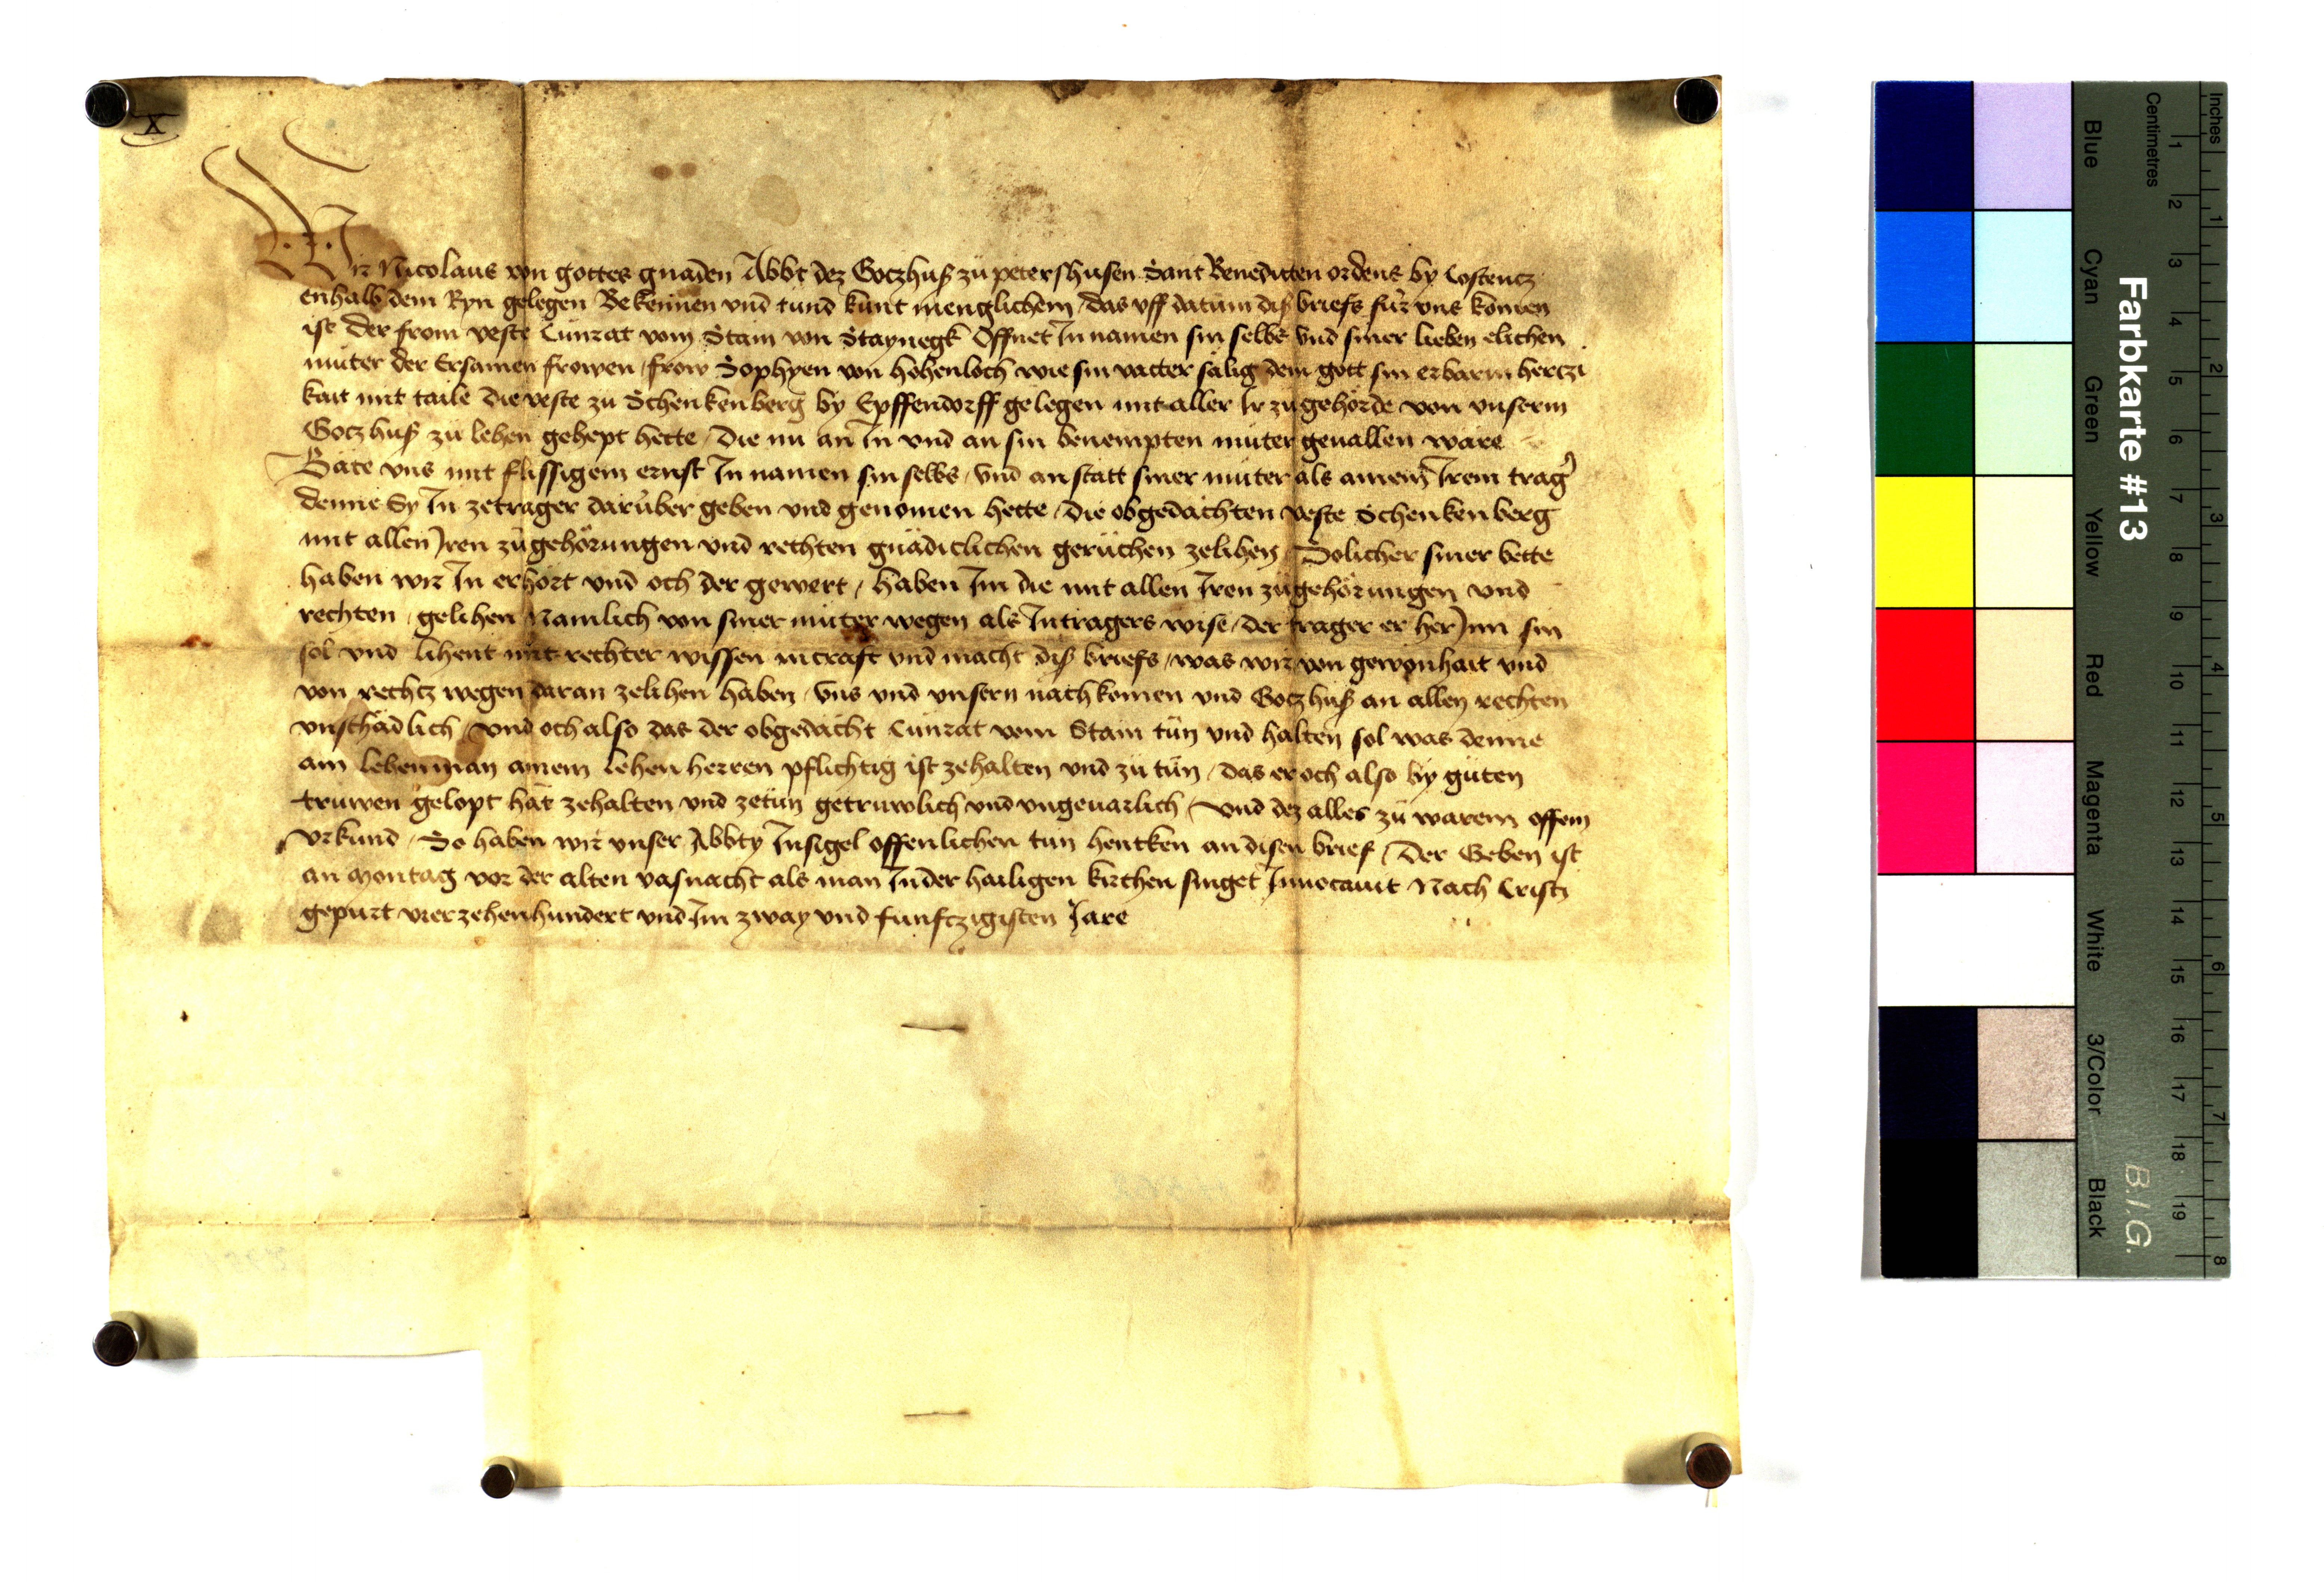 X
Wir Nicolaus von gottes gnaden Abbt dez Goczhuß zů petershusen Sant Benedicten ordens by Costencz
enhalb dem Ryn gelegen Bekennen vnd tund kunt menglichem / das vff datum diß briefs für vns komen
ist der from veste Cunrat vom Stain von Staynegk Offnet In namen sin selbs vnd siner lieben elichen
můter der Ersamen frowen / frow Sophyen von hohenloch wie sin vatter sälig dem gott sin erbarmhertzi
kait mit taile die veste zu Schenkenberg by Epffendorff gelegen mit aller Ir zůgehörde von vnserm
Goczhuß zů lehen gehept hette / die nu an In vnd an sin benempten můter geuallen ware
Bäte vns mit flissigem ernst In namen sin selbs / vnd an statt siner můter als ainem Irem trager
denne Sy In zetrager darüber geben vnd genomen hette / die obgedachten veste Schenkenberg
mit allen Iren zůgehörungen vnd rechten gnädiclichen gerüchen zelihen / Solicher siner bette
haben wir In erhört vnd och der gewert / haben Im die mit allen Iren zůgehörungen vnd
rechten / gelihen Namlich von siner můter wegen als Intragers wise / der trager er her Inn sin
sol vnd lihent mit rechter wissen incraft vnd macht diß briefs / was wir von gewonhait vnd
von rechtz wegen daran zelihen haben / vns vnd vnsern nachkomen vnd Goczhuß an allen rechten
vnschädlich / vnd och also das der obgedacht Cunrat vom Stain tůn vnd halten sol was denne
ain lehenman ainem lehen herren pflichtig ist zehalten vnd zů tůn / das er och also by gůten
truwen gelopt hät zehalten vnd zetůn getruwlich vnd vngeuarlich / vnd dez alles zů warem offem
vrkund / So haben wir vnser Abbty Insigel offenlichen tun hencken an disen brief / Der Geben ist
an montag vor der alten vasnacht als man In der hailigen kirchen singet Inuocauit Nach Cristi
gepurt vierzehenhundert vnd Im zway vnd funftzigisten Jare
Farbkarte #13
B.I.G.
Inches
Centimetres
1 2 3 4 5 6 7 8
1 2 3 4 5 6 7 8 9 10 11 12 13 14 15 16 17 18 19
Blue
Cyan
Green
Yellow
Red
Magenta
White
3/Color
Black